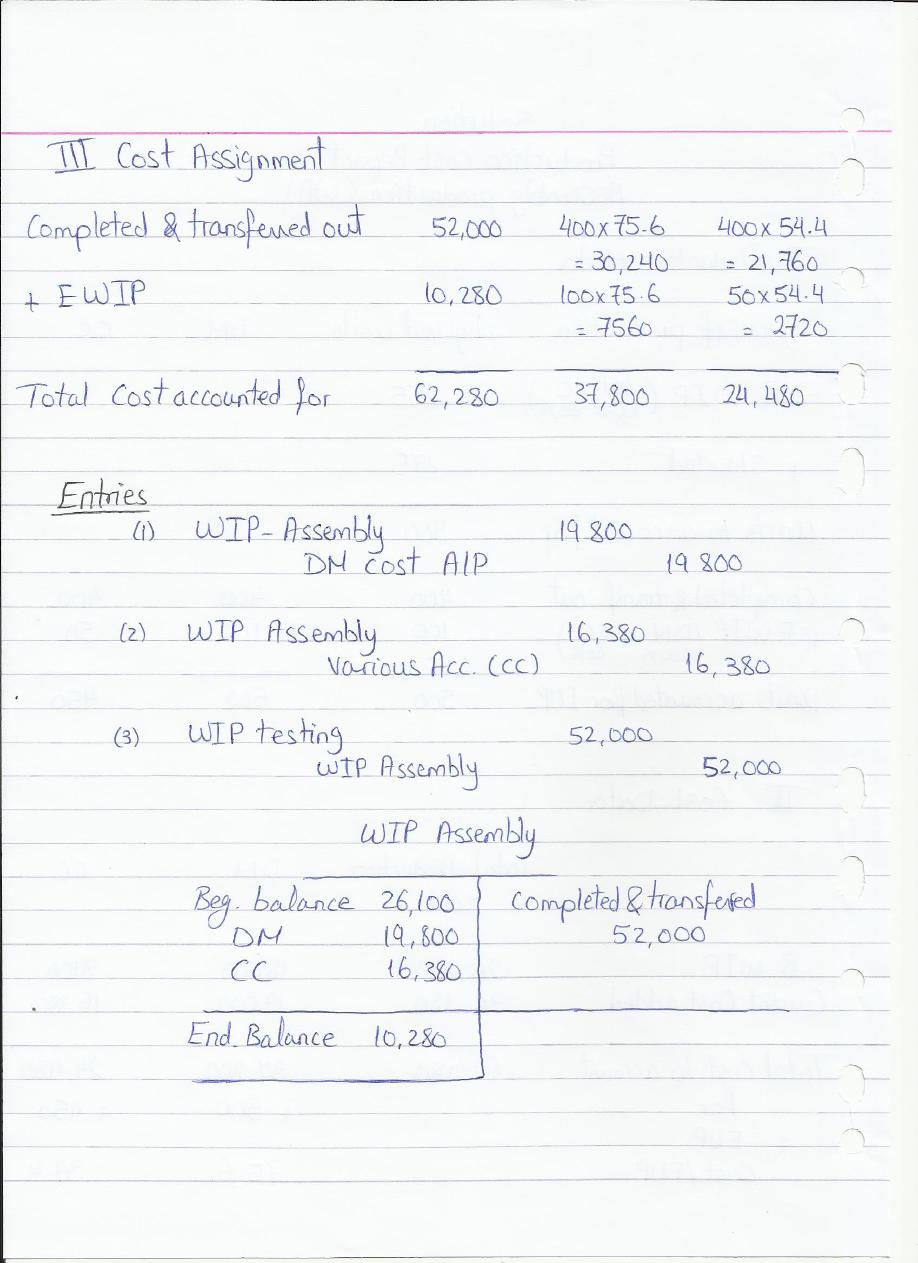 III Cost Assignment
Completed & transferred out 52,000 400x75.6 400x54.4
= 30,240 = 21,760
+ EWIP 10,280 100x75.6 50x54.4
= 7560 = 2720
Total Cost accounted for 62,280 37,800 24,480
Entries
(1) WIP-Assembly 19 800
DM cost A/P 19 800
(2) WIP Assembly 16,380
Various Acc. (CC) 16,380
(3) WIP testing 52,000
WIP Assembly 52,000
WIP Assembly
Beg. balance 26,100 Completed & transfered
DM 19,800 52,000
CC 16,380
End. Balance 10,280